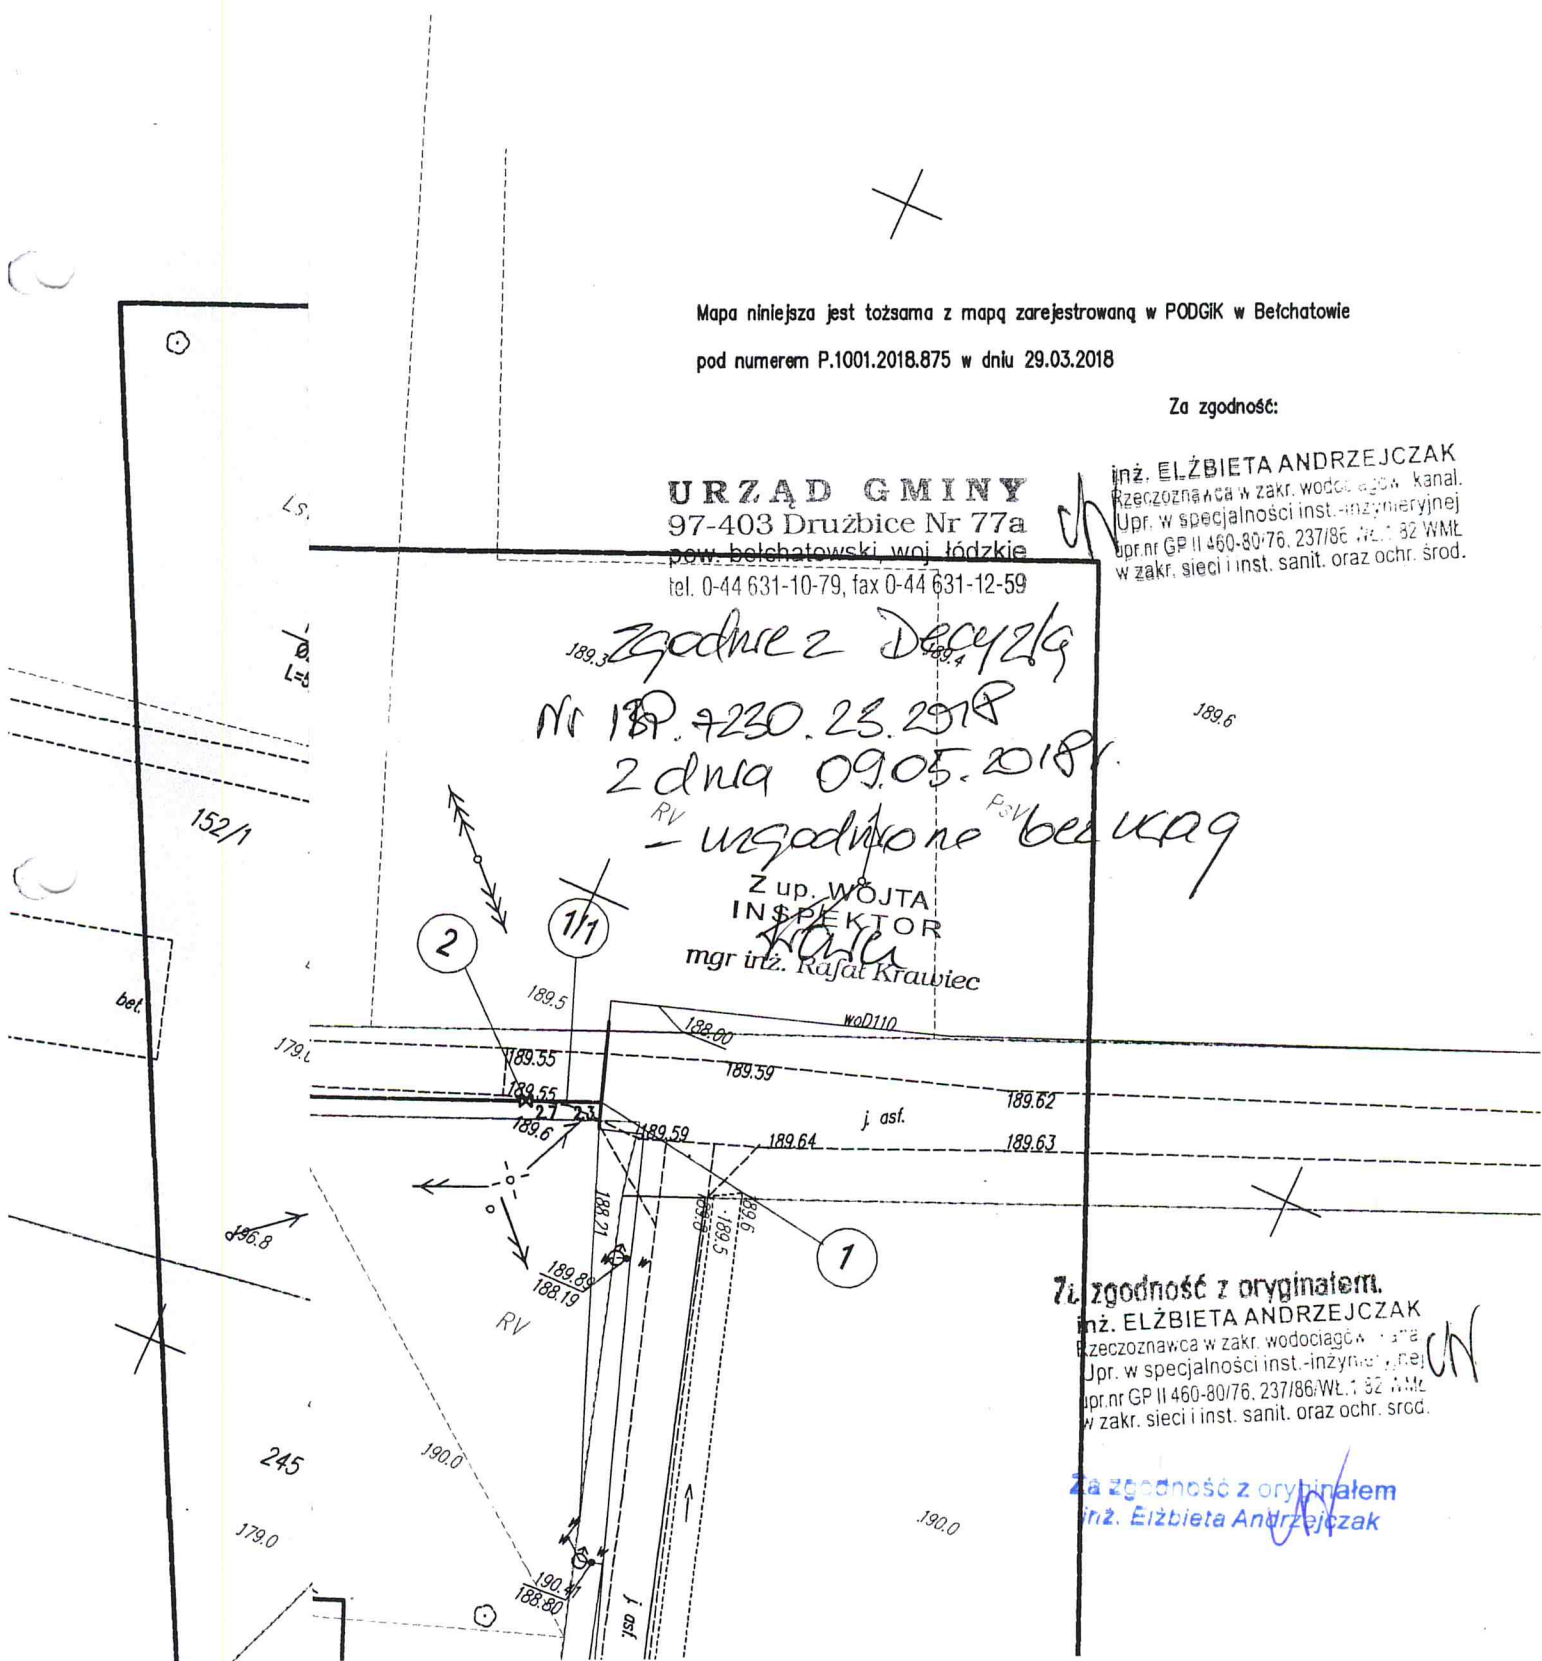 Mapa niniejsza jest tożsama z mapą zarejestrowaną w PODGiK w Bełchatowie
pod numerem P.1001.2018.875 w dniu 29.03.2018
Za zgodność:
inż. ELŻBIETA ANDRZEJCZAK
Rzeczoznawca w zakr. kanal.
Upr. w specjalności inst.-inżynieryjnej
upr.nr GP II 460-80/76, 237/86 82 WMŁ
w zakr. sieci i inst. sanit. oraz ochr. środ.
URZĄD GMINY
97-403 Drużbice Nr 77a
pow. bełchatowski, woj. łódzkie
tel. 0-44 631-10-79, fax 0-44 631-12-59
Ls.
L=5
189.3
zgodnie z Decyzją
189.4
Nr 7230.23.2018
189.6
z dnia 09.05.2018r.
RV
PsV
- uzgodniono bez uwag
152/1
Z up. WÓJTA
INSPEKTOR
mgr inż. Rafał Krawiec
2
1/1
bet.
189.5
179.0
188.00
woD110
189.55
189.59
189.55
189.62
2.7
2.3
189.6
189.59
189.64
j. asf.
189.63
188.21
189.6
189.5
196.8
1
189.89
188.19
RV
Za zgodność z oryginałem.
inż. ELŻBIETA ANDRZEJCZAK
Rzeczoznawca w zakr. wodociągów
Upr. w specjalności inst.-inżynieryjnej
upr.nr GP II 460-80/76, 237/86/WŁ.1 82 WMŁ
w zakr. sieci i inst. sanit. oraz ochr. środ.
245
190.0
179.0
Za zgodność z oryginałem
inż. Elżbieta Andrzejczak
190.0
190.41
188.80
j. asf.